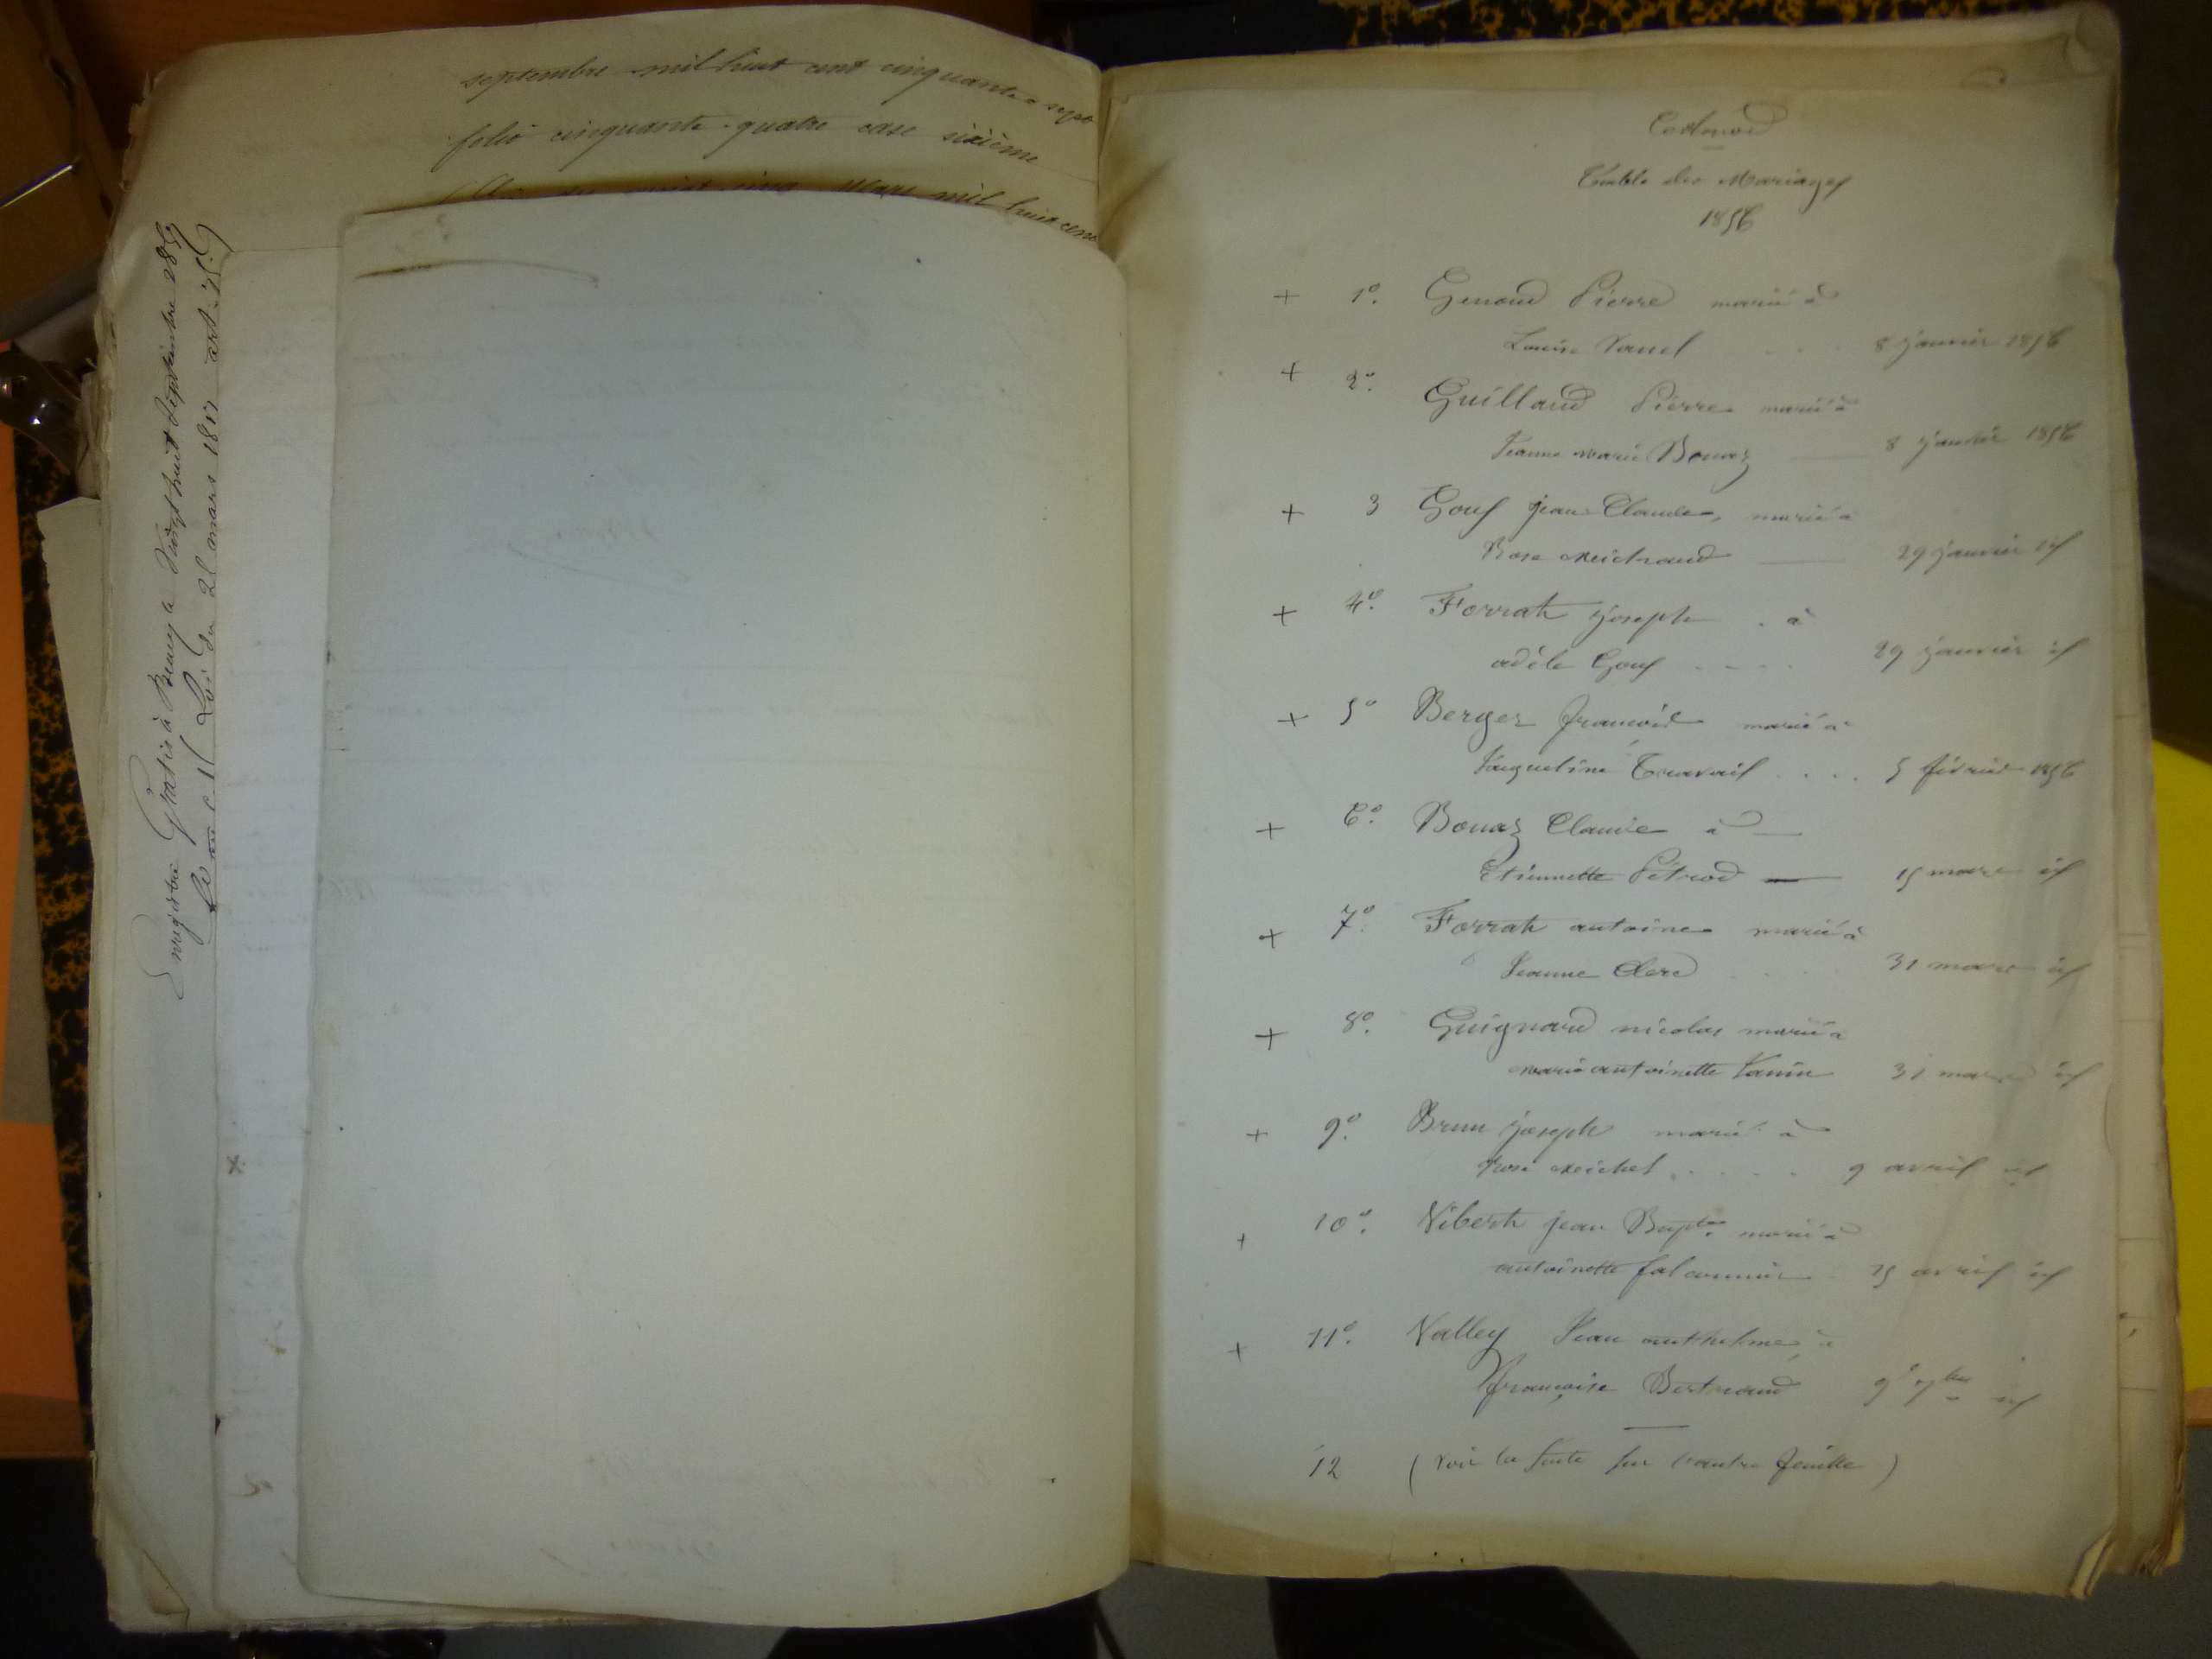 septembre mil huit cent cinquante sept
folio cinquante-quatre case sixième
mil huit cent
Enregistré Gratis à Beaug le Vingt huit Septembre
Loi du 21 mars 18 art.
Table des Mariages
1856
+ 1º. Genoud Pierre marié à
Louise Vanel .... 8 janvier 1856
+ 2º. Guilland Pierre marié à
Jeanne marie Bouaz — 8 janvier 1856
+ 3 Gouf jean-Claude, marié à
Rose — 29 janvier id
+ 4º. Ferrat joseph . à
adèle Gouf .... 29 janvier id
+ 5º Berger françois marié à
Jaqueline Travail .... 5 février 1856
+ 6º. Bouaz Claude à —
Etiennette Pétrod — 15 mars id
+ 7º. Ferrat antoine marié à
Jeanne Clerc .... 31 mars id
+ 8º. Guignard nicolas marié à
marie antoinette 31 mars id
+ 9º. Brun joseph marié à
Rose ..... 9 avril id
+ 10º. Nibert jean Bapte. marié à
antoinette falconnier 15 avril id
+ 11º. Valley Jean anthelme, à
françoise Bertrand 9 id
12 (voir la suite sur l'autre feuille)